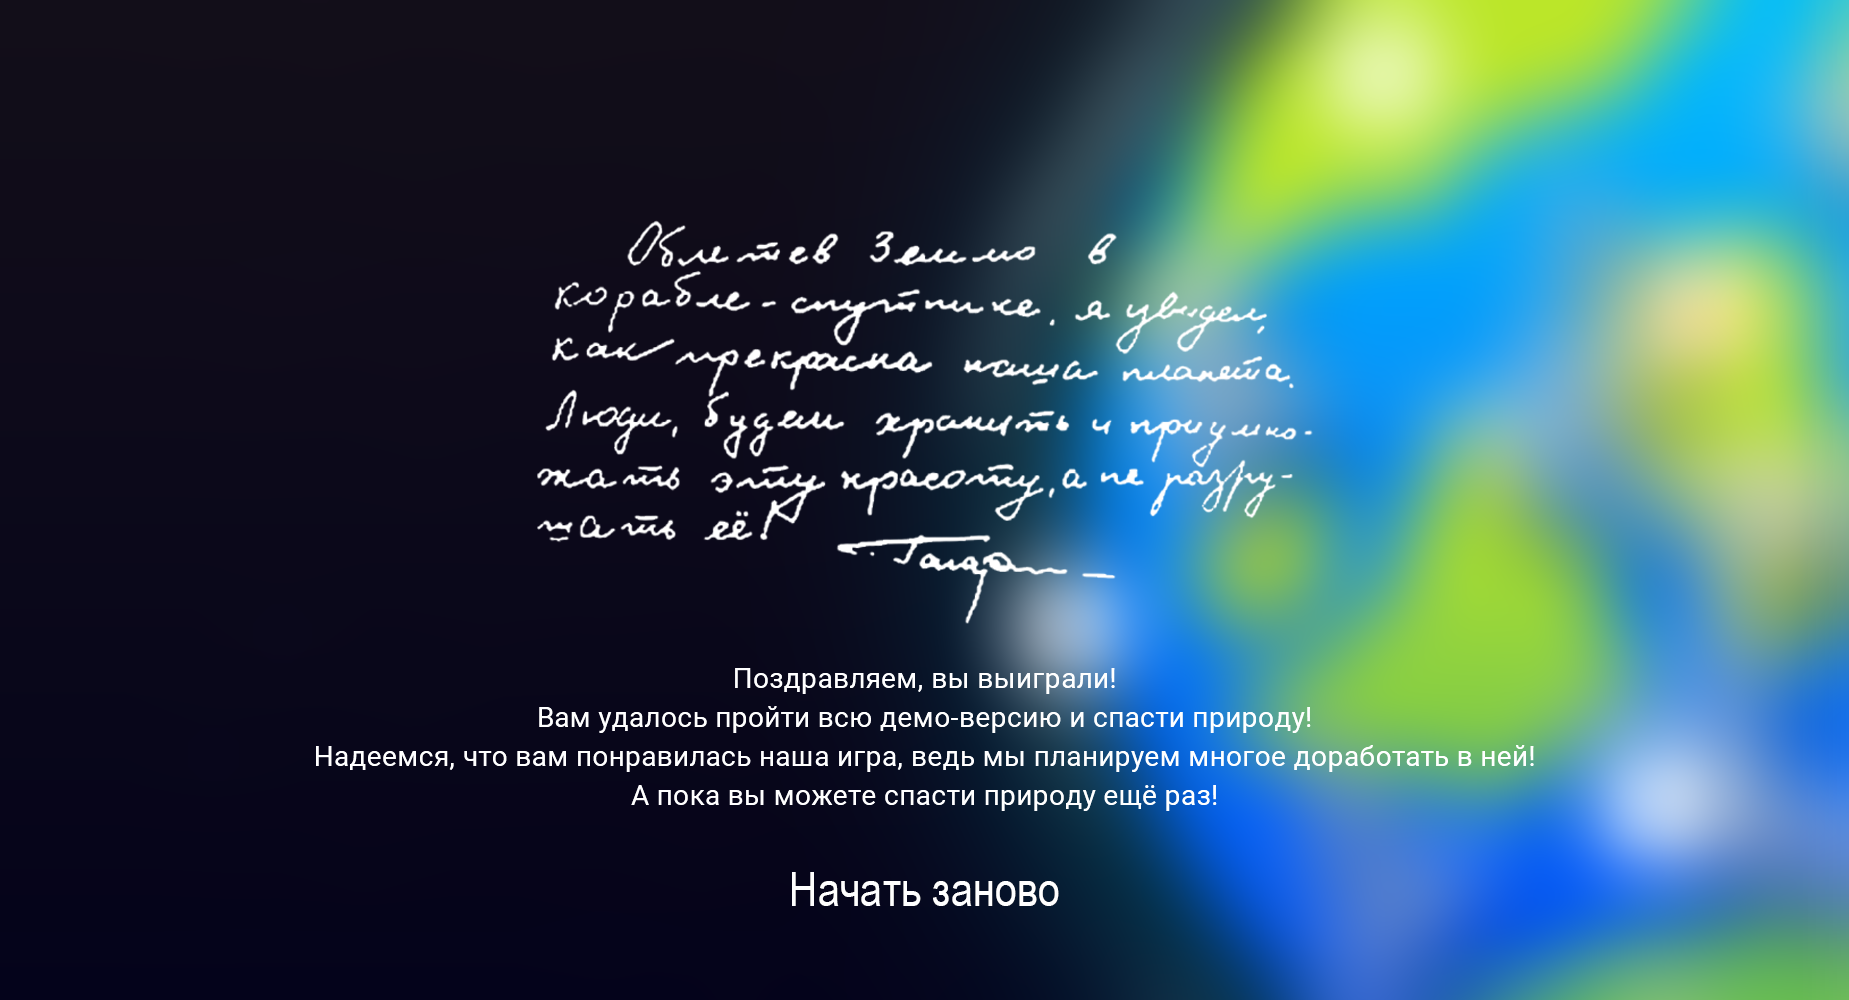 Облетев Землю в
корабле-спутнике, я увидел,
как прекрасна наша планета.
Люди, будем хранить и приумно-
жать эту красоту, а не разру-
шать её!
Гагарин
Поздравляем, вы выиграли!
Вам удалось пройти всю демо-версию и спасти природу!
Надеемся, что вам понравилась наша игра, ведь мы планируем многое доработать в ней!
А пока вы можете спасти природу ещё раз!
Начать заново